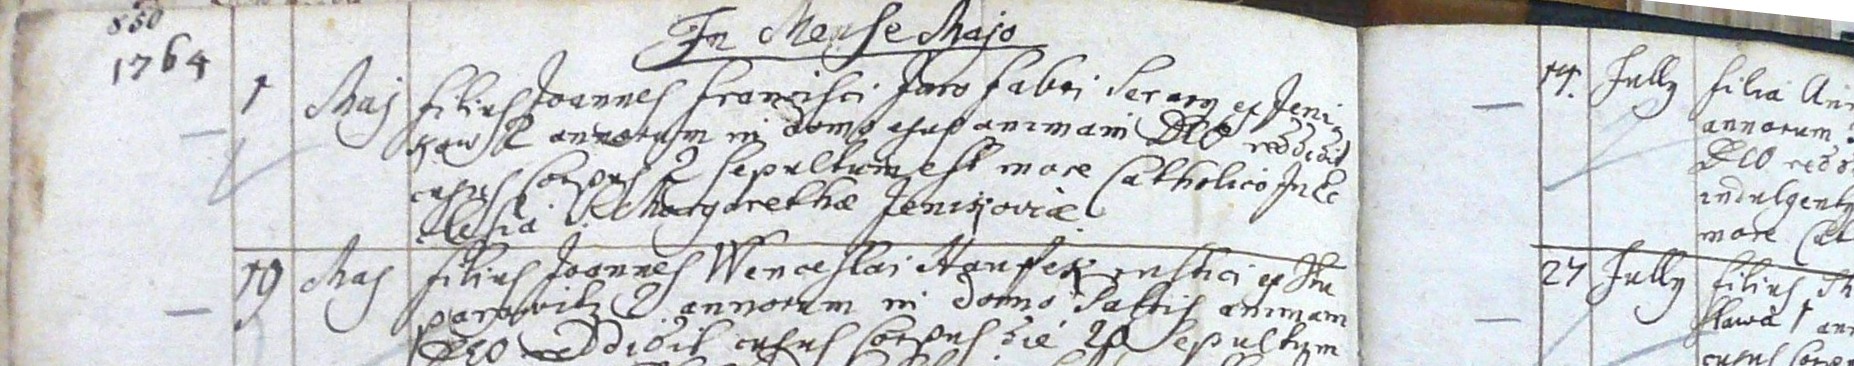 850
1764
In Mense Majo
1 Maj Filius Joannes Francisci Jaro Fabri Serary ex Jeni
kow 2 annorum in domo ejus animam DEO reddidit
cujus Corpus 2 sepultum est more Catholico In Ec
clesia S. Margarethæ Jenikoviæ
19 Maj Filius Joannes Wenceslai rustici ex Stu
parowitz 2 annorum in domo Patris animam
DEO reddidit cujus Corpus die 20 Sepultum
14. July Filia
annorum
DEO
indulgenty
more
27 July Filius
1
cujus